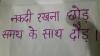 नकदी रखना छोड़
समय के साथ दौड़।